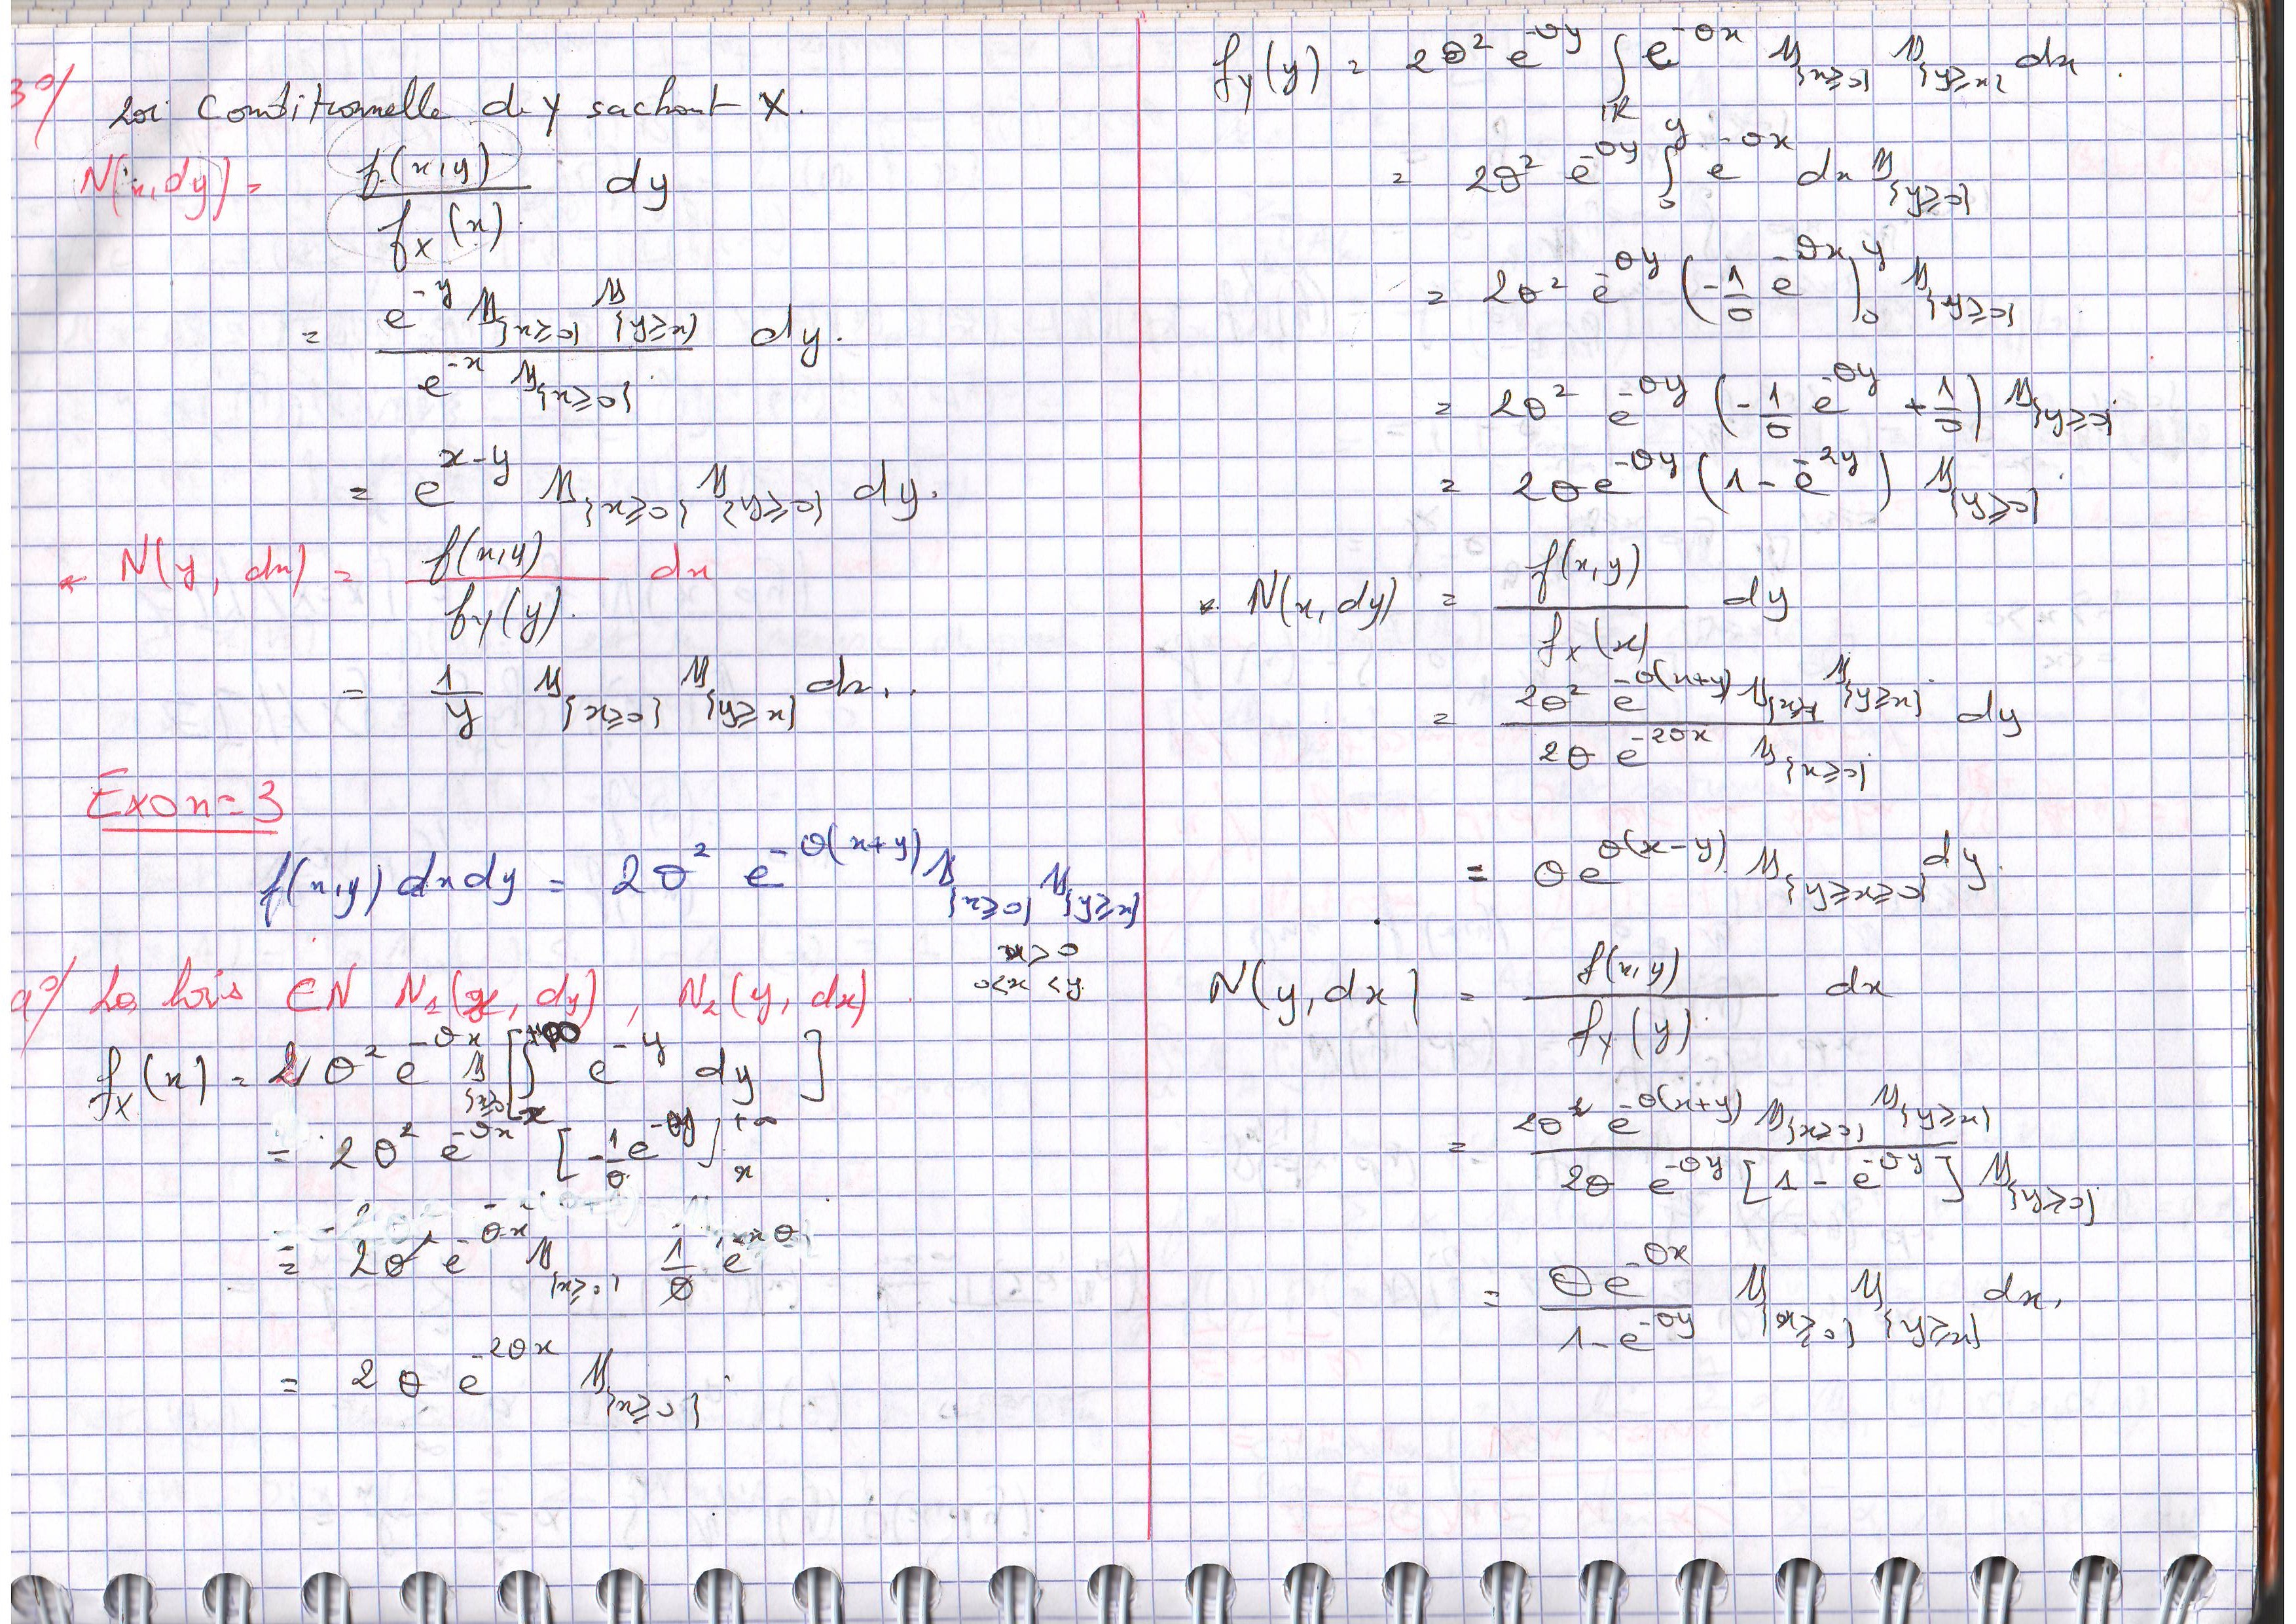 3°/ Loi Conditionnelle de Y sachant X.
N(x,dy) = f(x,y) / f_X(x) dy
= e^{-y} 𝟙_{x≥0} 𝟙_{y≥x} / e^{-x} 𝟙_{x≥0} dy.
= e^{x-y} 𝟙_{x≥0} 𝟙_{y≥0} dy.
* N(y, dx) = f(x,y) / f_Y(y). dx
= 1/y 𝟙_{x≥0} 𝟙_{y≥x} dx.
Exo n=3
f(x,y) dx dy = 2θ² e^{-θ(x+y)} 𝟙_{x≥0} 𝟙_{y≥x}
x>0
0<x<y
a°/ Les lois CN N₁(x, dy), N₂(y, dx).
f_X(x) = 2θ² e^{-θx} 𝟙_{x≥0} [∫_x^{+∞} e^{-y} dy]
= 2θ² e^{-θx} [-1/θ e^{-θy}]_x^{+∞}
= 2θ e^{-θx} 𝟙_{x≥0} 1/θ e
= 2θ e^{-2θx} 𝟙_{x≥0}.
f_Y(y) = 2θ² e^{-θy} ∫_ℝ e^{-θx} 𝟙_{x≥0} 𝟙_{y≥x} dx.
= 2θ² e^{-θy} ∫_0^y e^{-θx} dx 𝟙_{y≥0}
= 2θ² e^{-θy} (-1/θ e^{-θx})_0^y 𝟙_{y≥0}
= 2θ² e^{-θy} (-1/θ e^{-θy} + 1/θ) 𝟙_{y≥0}
= 2θ e^{-θy} (1 - e^{-2y}) 𝟙_{y≥0}.
* N(x, dy) = f(x,y) / f_X(x) dy
= 2θ² e^{-θ(x+y)} 𝟙_{x≥} 𝟙_{y≥x} / 2θ e^{-2θx} 𝟙_{x≥0} dy
= θ e^{θ(x-y)} 𝟙_{y≥x≥0} dy.
N(y, dx) = f(x,y) / f_Y(y) dx
= 2θ² e^{-θ(x+y)} 𝟙_{x≥0} 𝟙_{y≥x} / 2θ e^{-θy} [1 - e^{-θy}] 𝟙_{y≥0}
= θ e^{-θx} / 1 - e^{-θy} 𝟙_{x≥0} 𝟙_{y≥x} dx.